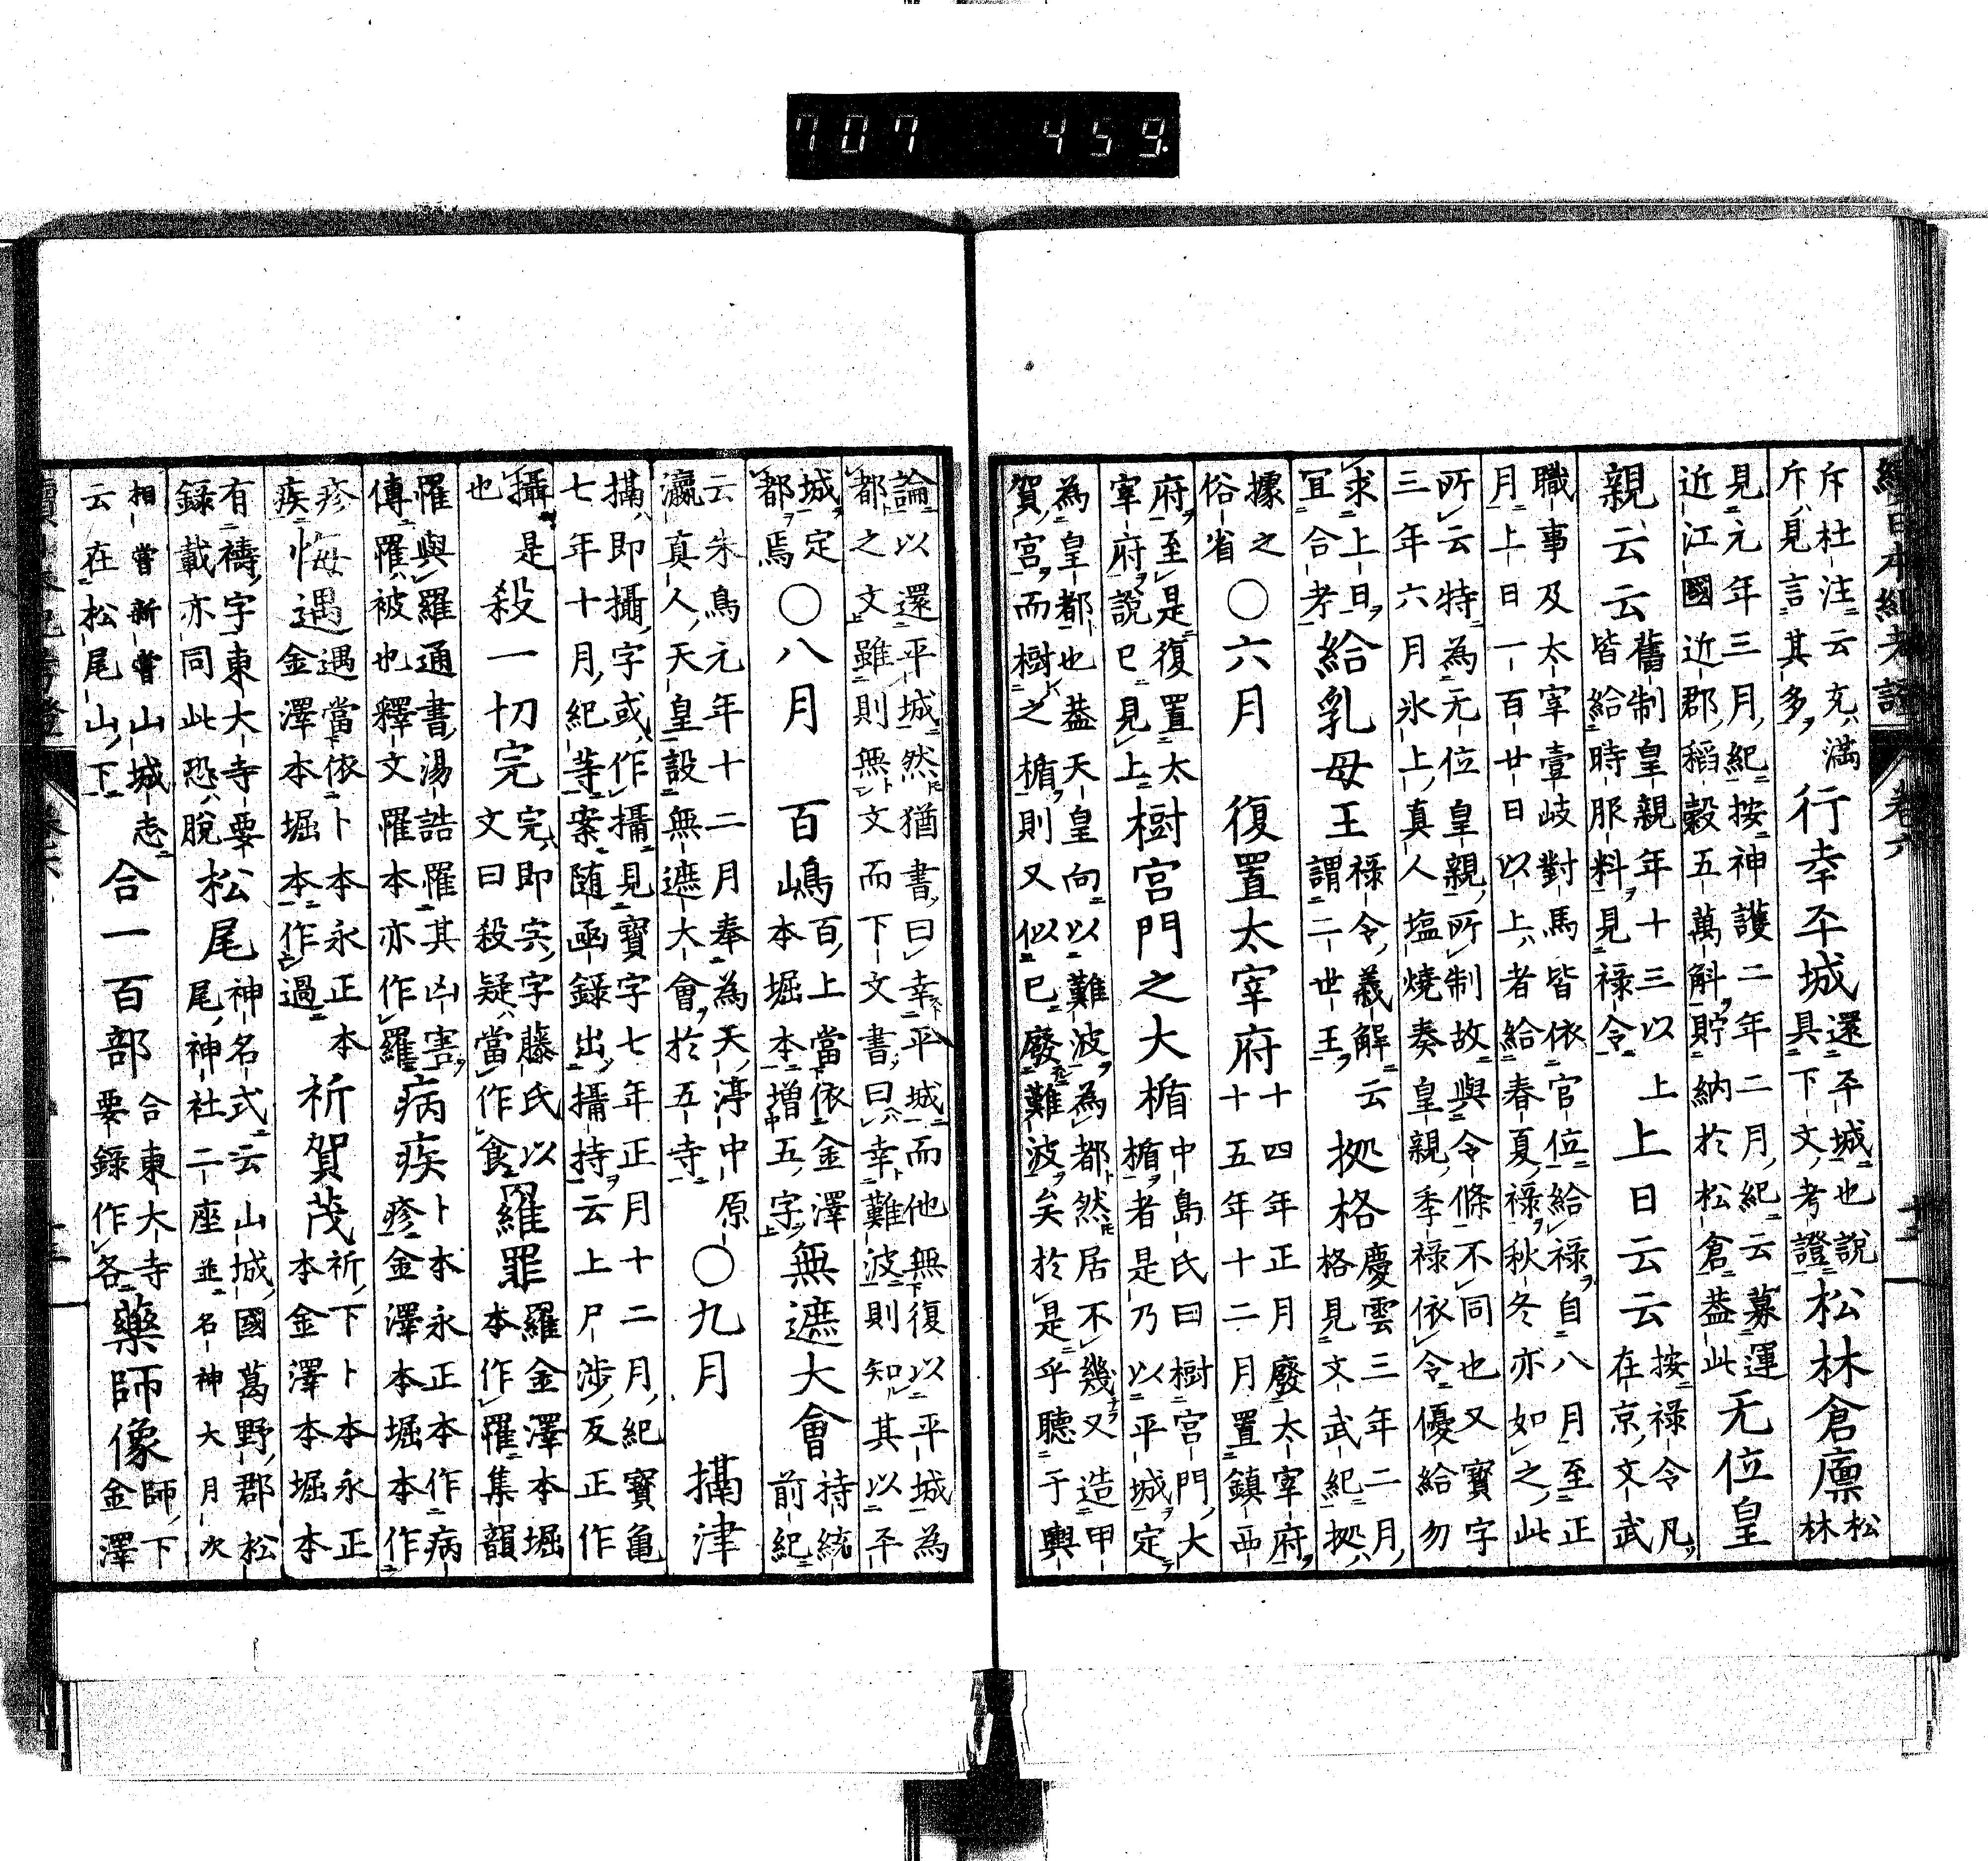 707 459.
續日本紀考證 卷六
斥杜注云充滿
斥見言其多
行幸平城
還平城也說
具下文考證
松林倉廪
松
林
見元年三月紀按神護二年二月紀云募運
近江國近郡稻穀五萬斛貯納於松倉蓋此
无位皇
親云云
舊制皇親年十三以上
皆給時服料見祿令
上日云云
按祿令凡
在京文武
職事及太宰壹岐對馬皆依官位給祿自八月至正
月上日一百廿日以上者給春夏祿秋冬亦如之此
所云特為无位皇親所制故與令條不同也又寶字
三年六月氷上真人塩燒奏皇親季祿依令優給勿
求上日
宜合考
給乳母王
祿令義解云
謂二世王
拠格
慶雲三年二月
格見文武紀拠
據之
俗省
〇六月
復置太宰府
十四年正月廢太宰府
十五年十二月置鎮西
府至是復置太
宰府說已見上
樹宮門之大楯
中島氏曰樹宮門大
楯者是乃以平城定
為皇都也蓋天皇向以難波為都然居不幾又造甲
賀宮而樹之楯則又似已廢難波矣於是乎聽于輿
論以還平城然猶書曰幸平城而他無復以平城為
都之文雖則無文而下文書曰幸難波則知其以平
城定
都焉
〇八月
百嶋
百上當依金澤
本堀本增五字
無遮大會
持統
前紀
云朱鳥元年十二月奉為天渟中原
瀛真人天皇設無遮大會於五寺
〇九月
㨉津
㨉即攝字或作攝見寶字七年正月十二月紀寶亀
七年十月紀等案随函錄出攝持云上尸涉反正作
攝是
也
殺一切完
完即宍字藤氏以
文曰殺疑當作食
羅罪
羅金澤本堀
本作罹集韻
罹與羅通書湯誥罹其凶害
傳罹被也釋文罹本亦作羅
病疾
卜本永正本作病
疹金澤本堀本作
疹
疾
悔過
過當依卜本永正本
金澤本堀本作過
祈賀茂
祈下卜本永正
本金澤本堀本
有禱字東大寺要
錄載亦同此恐脫
松尾
神名式云山城國葛野郡松
尾神社二座並名神大月次
相嘗新嘗山城志
云在松尾山下
合一百部
合東大寺
要錄作各
藥師像
師下
金澤
續日本紀考證 卷六